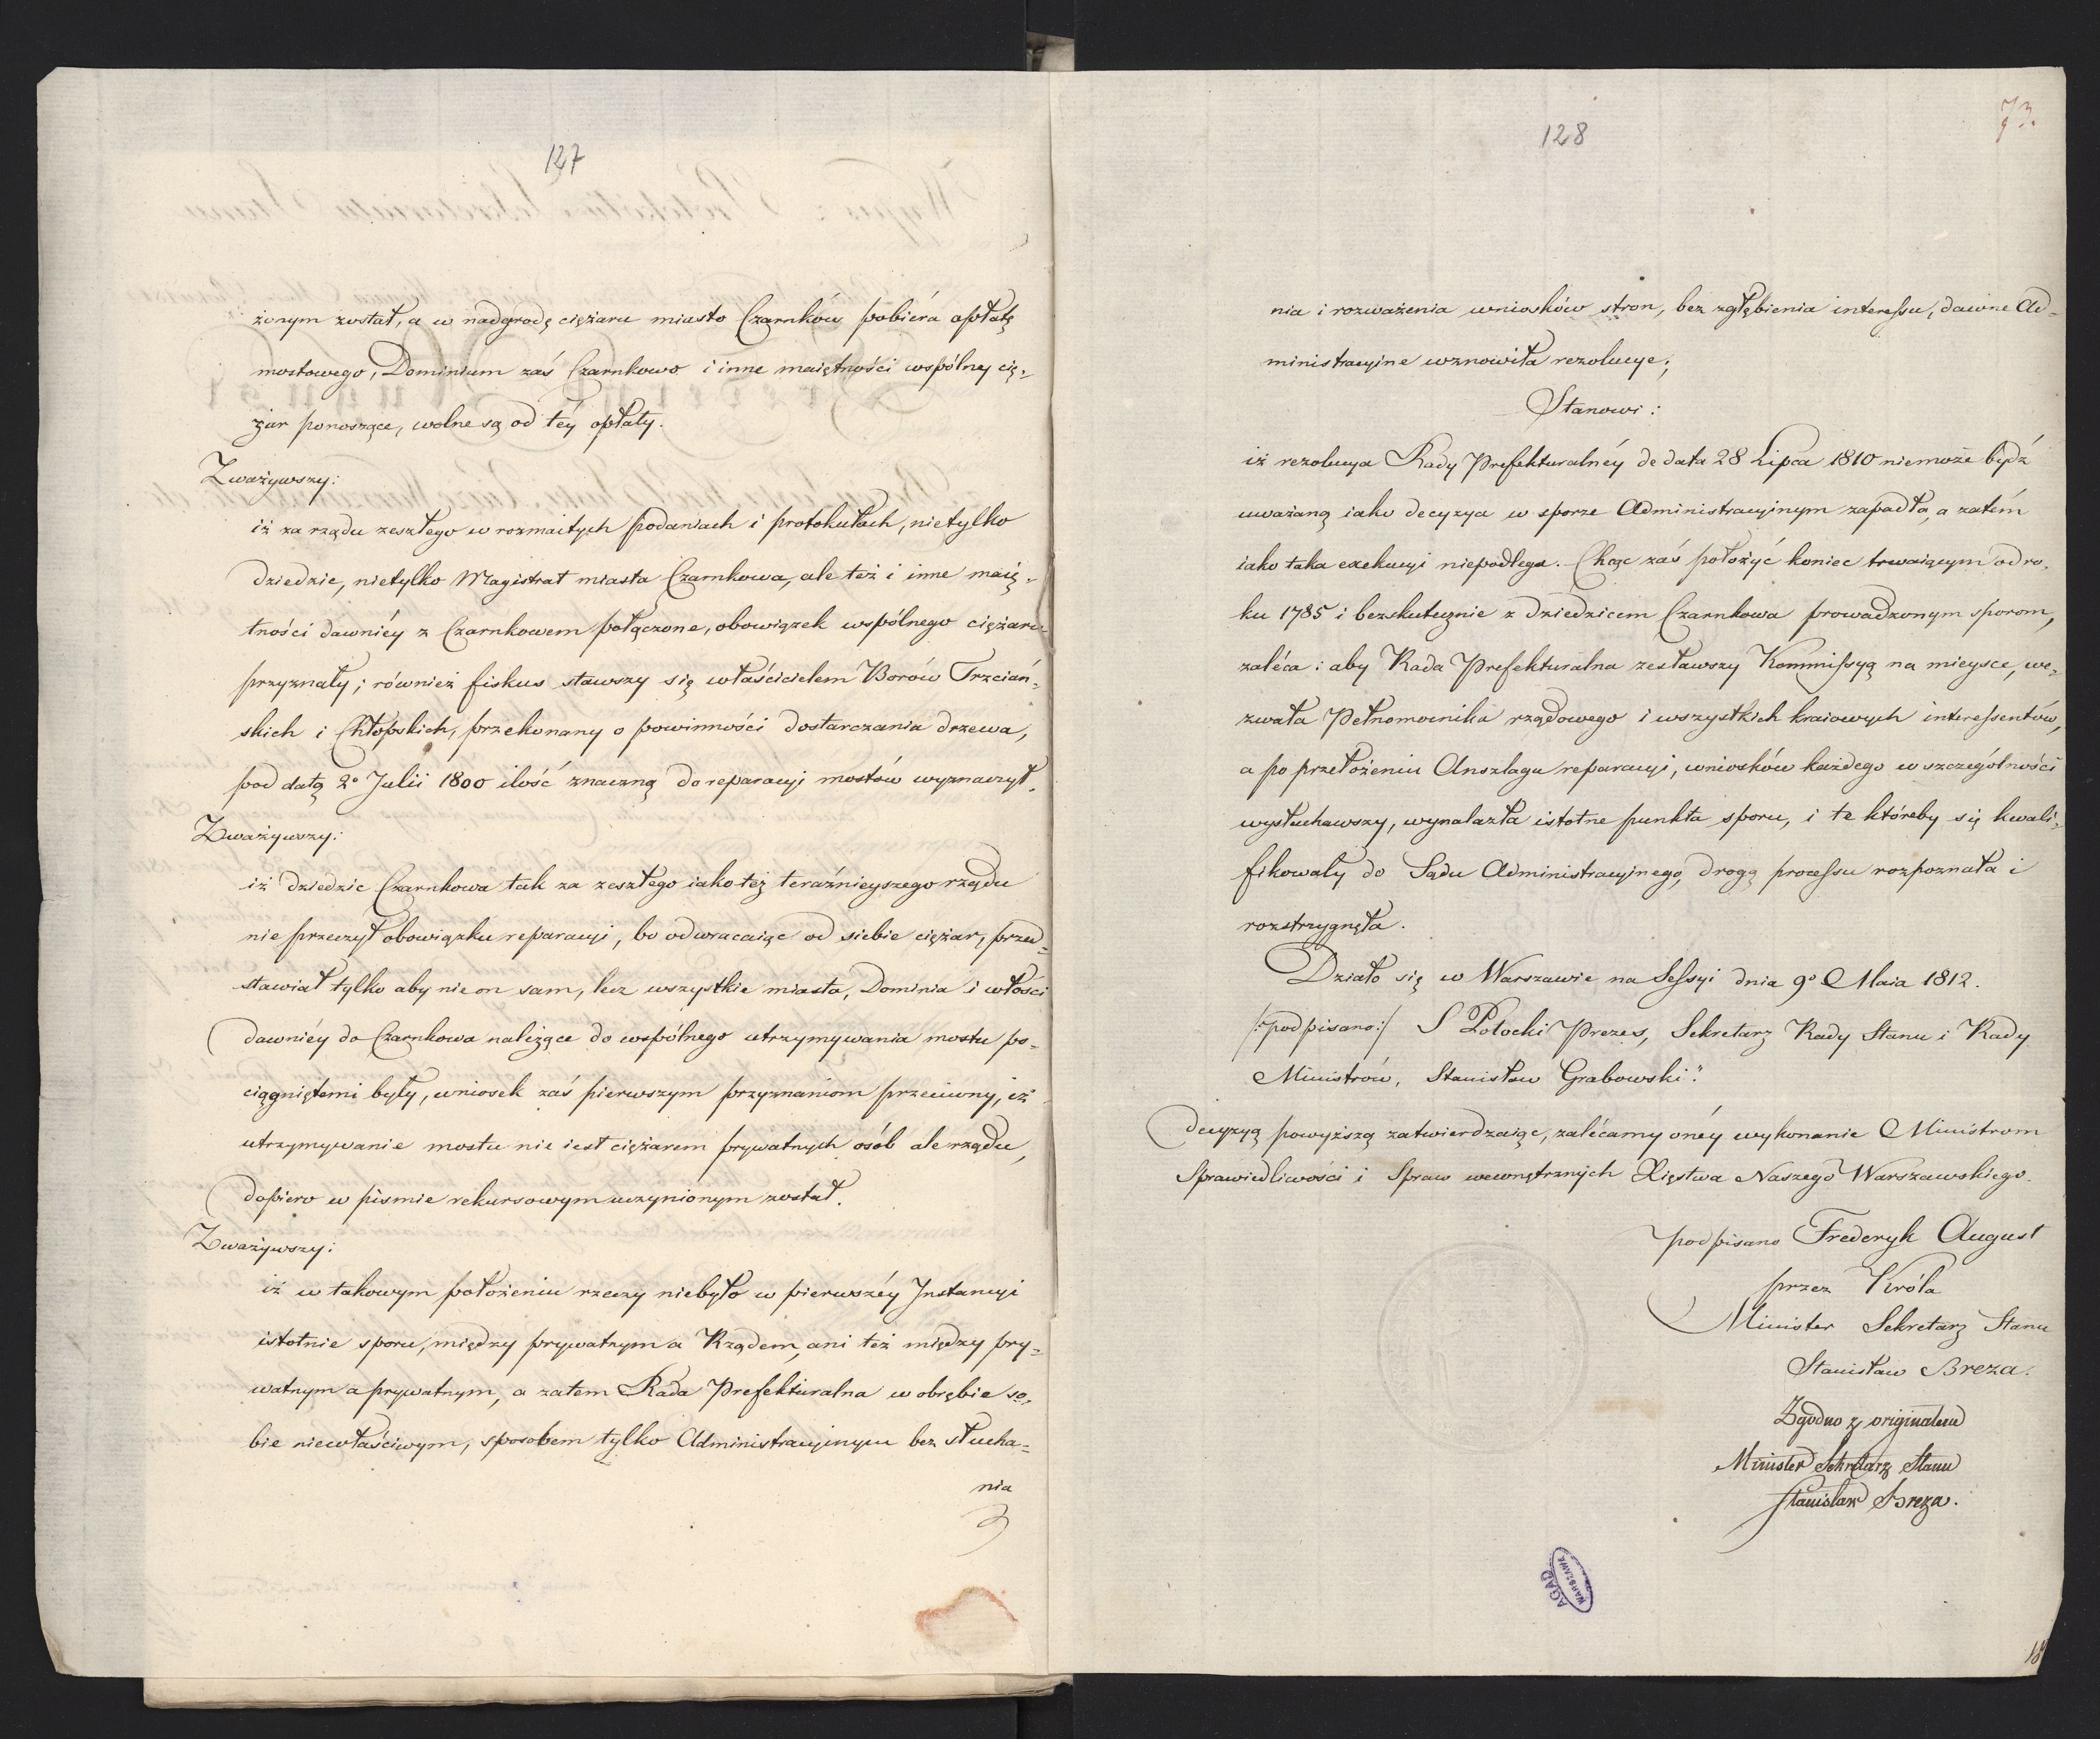 127
żonym został, a w nadgrodę ciężaru miasto Czarnków pobiéra opłatę
mostowego, Dominium zaś Czarnkowo i inne maiętności wspólny cię-
żar ponoszące, wolne są od téy opłaty.
Zważywszy:
iż za rządu zeszłego w rozmaitych podaniach i protokułach, nietylko
dziedzic, nietylko Magistrat miasta Czarnkowa, ale też i inne maię-
tności dawniéy z Czarnkowem połączone, obowiązek wspólnego ciężaru
przyznały; również fiskus stawszy się właścicielem Borów Trzciań-
skich i Chłopskich, przekonany o powinności dostarczania drzewa,
pod datą 2º Julii 1800 ilość znaczną do reparacyi mostów wyznaczył.
Zważywszy:
iż dziedzic Czarnkowa tak za zeszłego iako też teraźnieyszego rządu
nie przeczył obowiązku reparacyi, bo odwracaiąc od siebie ciężar, przed-
stawiał tylko aby nie on sam, lecz wszystkie miasta, Dominia i włości
dawniéy do Czarnkowa należące do wspólnego utrzymywania mostu po-
ciągniętemi były, wniosek zaś pierwszym przyznaniom przeciwny, iż
utrzymywanie mostu nie iest ciężarem prywatnych osób ale rządu,
dopiero w pismie rekursowym uczynionym został.
Zważywszy:
iż w takowym położeniu rzeczy niebyło w pierwszéy Instancyi
istotnie sporu, między prywatnym a Rządem, ani też między pry-
watnym a prywatnym, a zatem Rada Prefekturalna w obrębie so-
bie niewłaściwym, sposobem tylko Administracyinym bez słucha-
nia
128
73.
nia i rozważenia wniosków stron, bez zgłębienia interessu, dawne Ad-
ministracyine wznowiła rezolucye;
Stanowi:
iż rezolucya Rady Prefekturalnéy de data 28 Lipca 1810 niemoże bydź
uważaną iako decyzya w sporze Administracyinym zapadła, a zatém
iako taka exekucyi niepodlega. Chcąc zaś położyć koniec trwaiącym od ro-
ku 1785 i bezskutecznie z dziedzicem Czarnkowa prowadzonym sporom,
zaléca: aby Rada Prefekturalna zesławszy Kommissyą na mieysce, we-
zwała Pełnomocnika rządowego i wszystkich kraiowych interessentów,
a po przełożeniu Anszlagu reparacyi, wniosków każdego w szczególności
wysłuchawszy, wynalazła istotne punkta sporu, i te któreby się kwali-
fikowały do Sądu Administracyinego, drogą processu rozpoznała i
rozstrzygnęła.
Działo się w Warszawie na Sessyi dnia 9º Maia 1812.
/:podpisano:/ S Potocki Prezes, Sekretarz Rady Stanu i Rady
Ministrów, Stanisław Grabowski."
Decyzyą powyższą zatwierdzaiąc, zalécamy onéy wykonanie Ministrom
Sprawiedliwości i Spraw wewnętrznych Xięstwa Naszego Warszawskiego.
podpisano Frederyk August
przez Króla
Minister Sekretarz Stanu
Stanisław Breza.
Zgodno z originałem
Minister Sekretarz Stanu
Stanisław Breza.
AGAD
WARSZAWA